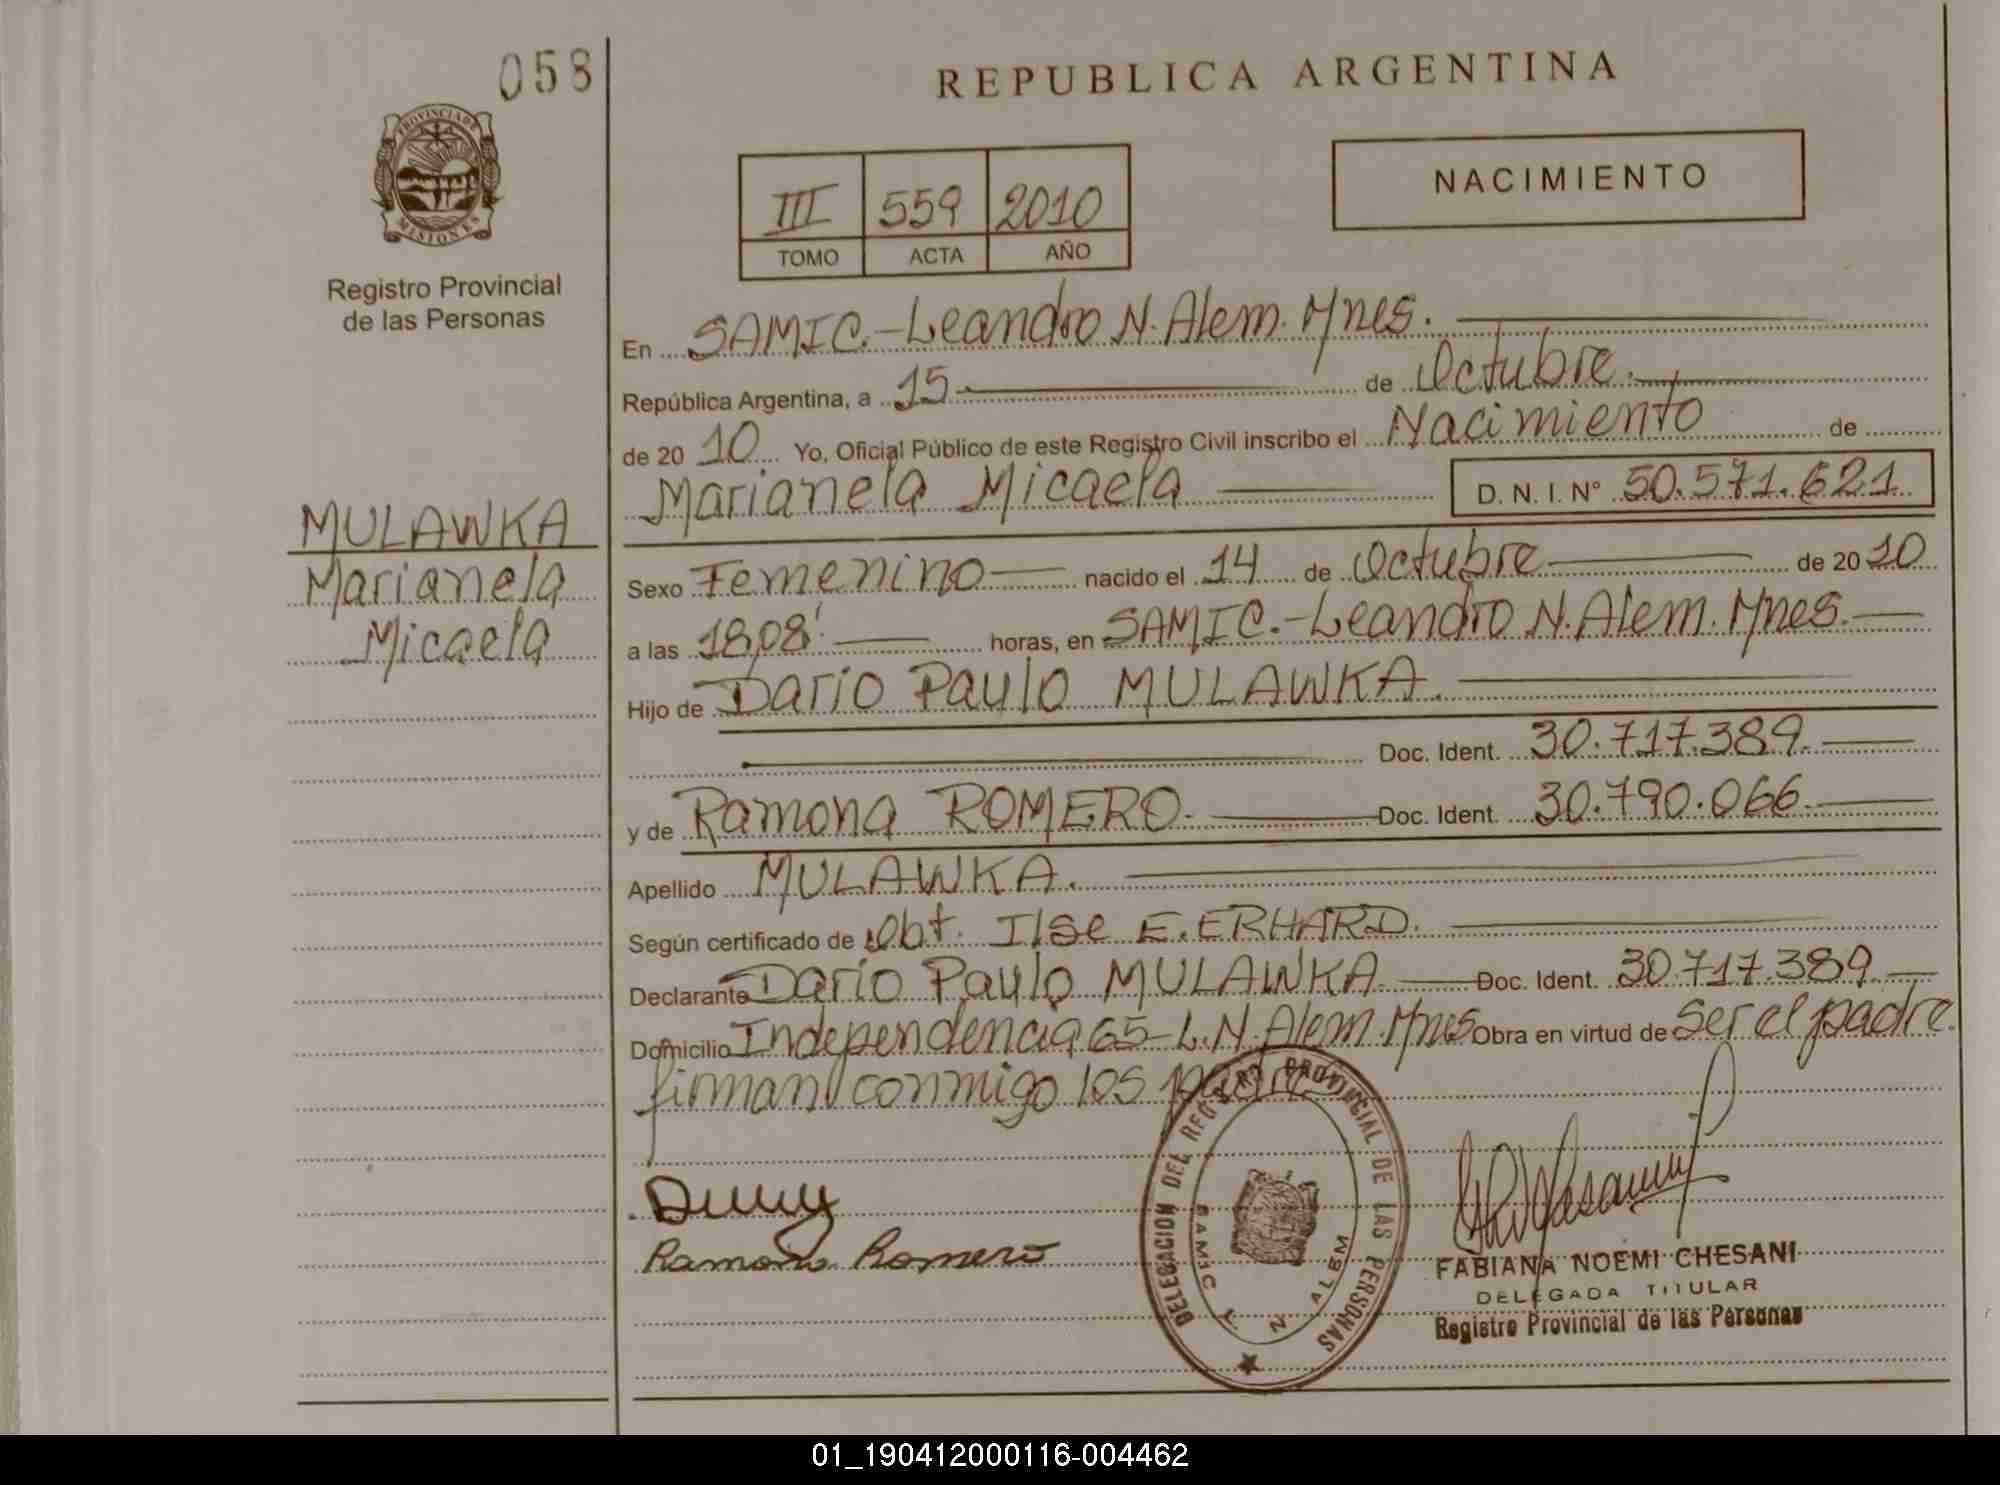 058
REPUBLICA ARGENTINA
PROVINCIA DE MISIONES
Registro Provincial
de las Personas
III 559 2010
TOMO ACTA AÑO
NACIMIENTO
En SAMIC.-Leandro N. Alem. Mnes.
República Argentina, a 15 de Octubre.
de 20 10 Yo, Oficial Público de este Registro Civil inscribo el Nacimiento de
Marianela Micaela D. N. I. N° 50.571.621
MULAWKA
Marianela
Micaela
Sexo Femenino nacido el 14 de Octubre de 20 10
a las 18,08' horas, en SAMIC.-Leandro N. Alem. Mnes.
Hijo de Dario Paulo MULAWKA.
Doc. Ident. 30.717.389.
y de Ramona ROMERO. Doc. Ident. 30.790.066.
Apellido MULAWKA.
Según certificado de Obt. Ilse E. ERHARD.
Declarante Dario Paulo MULAWKA Doc. Ident. 30.717.389.
Domicilio Independencia 65-L.N. Alem. Mnes Obra en virtud de ser el padre.
firman conmigo los
DELEGACION DEL REGISTRO PROVINCIAL DE LAS PERSONAS
SAMIC L. N. ALEM
Ramona Romero
FABIANA NOEMI CHESANI
DELEGADA TITULAR
Registro Provincial de las Personas
01_190412000116-004462